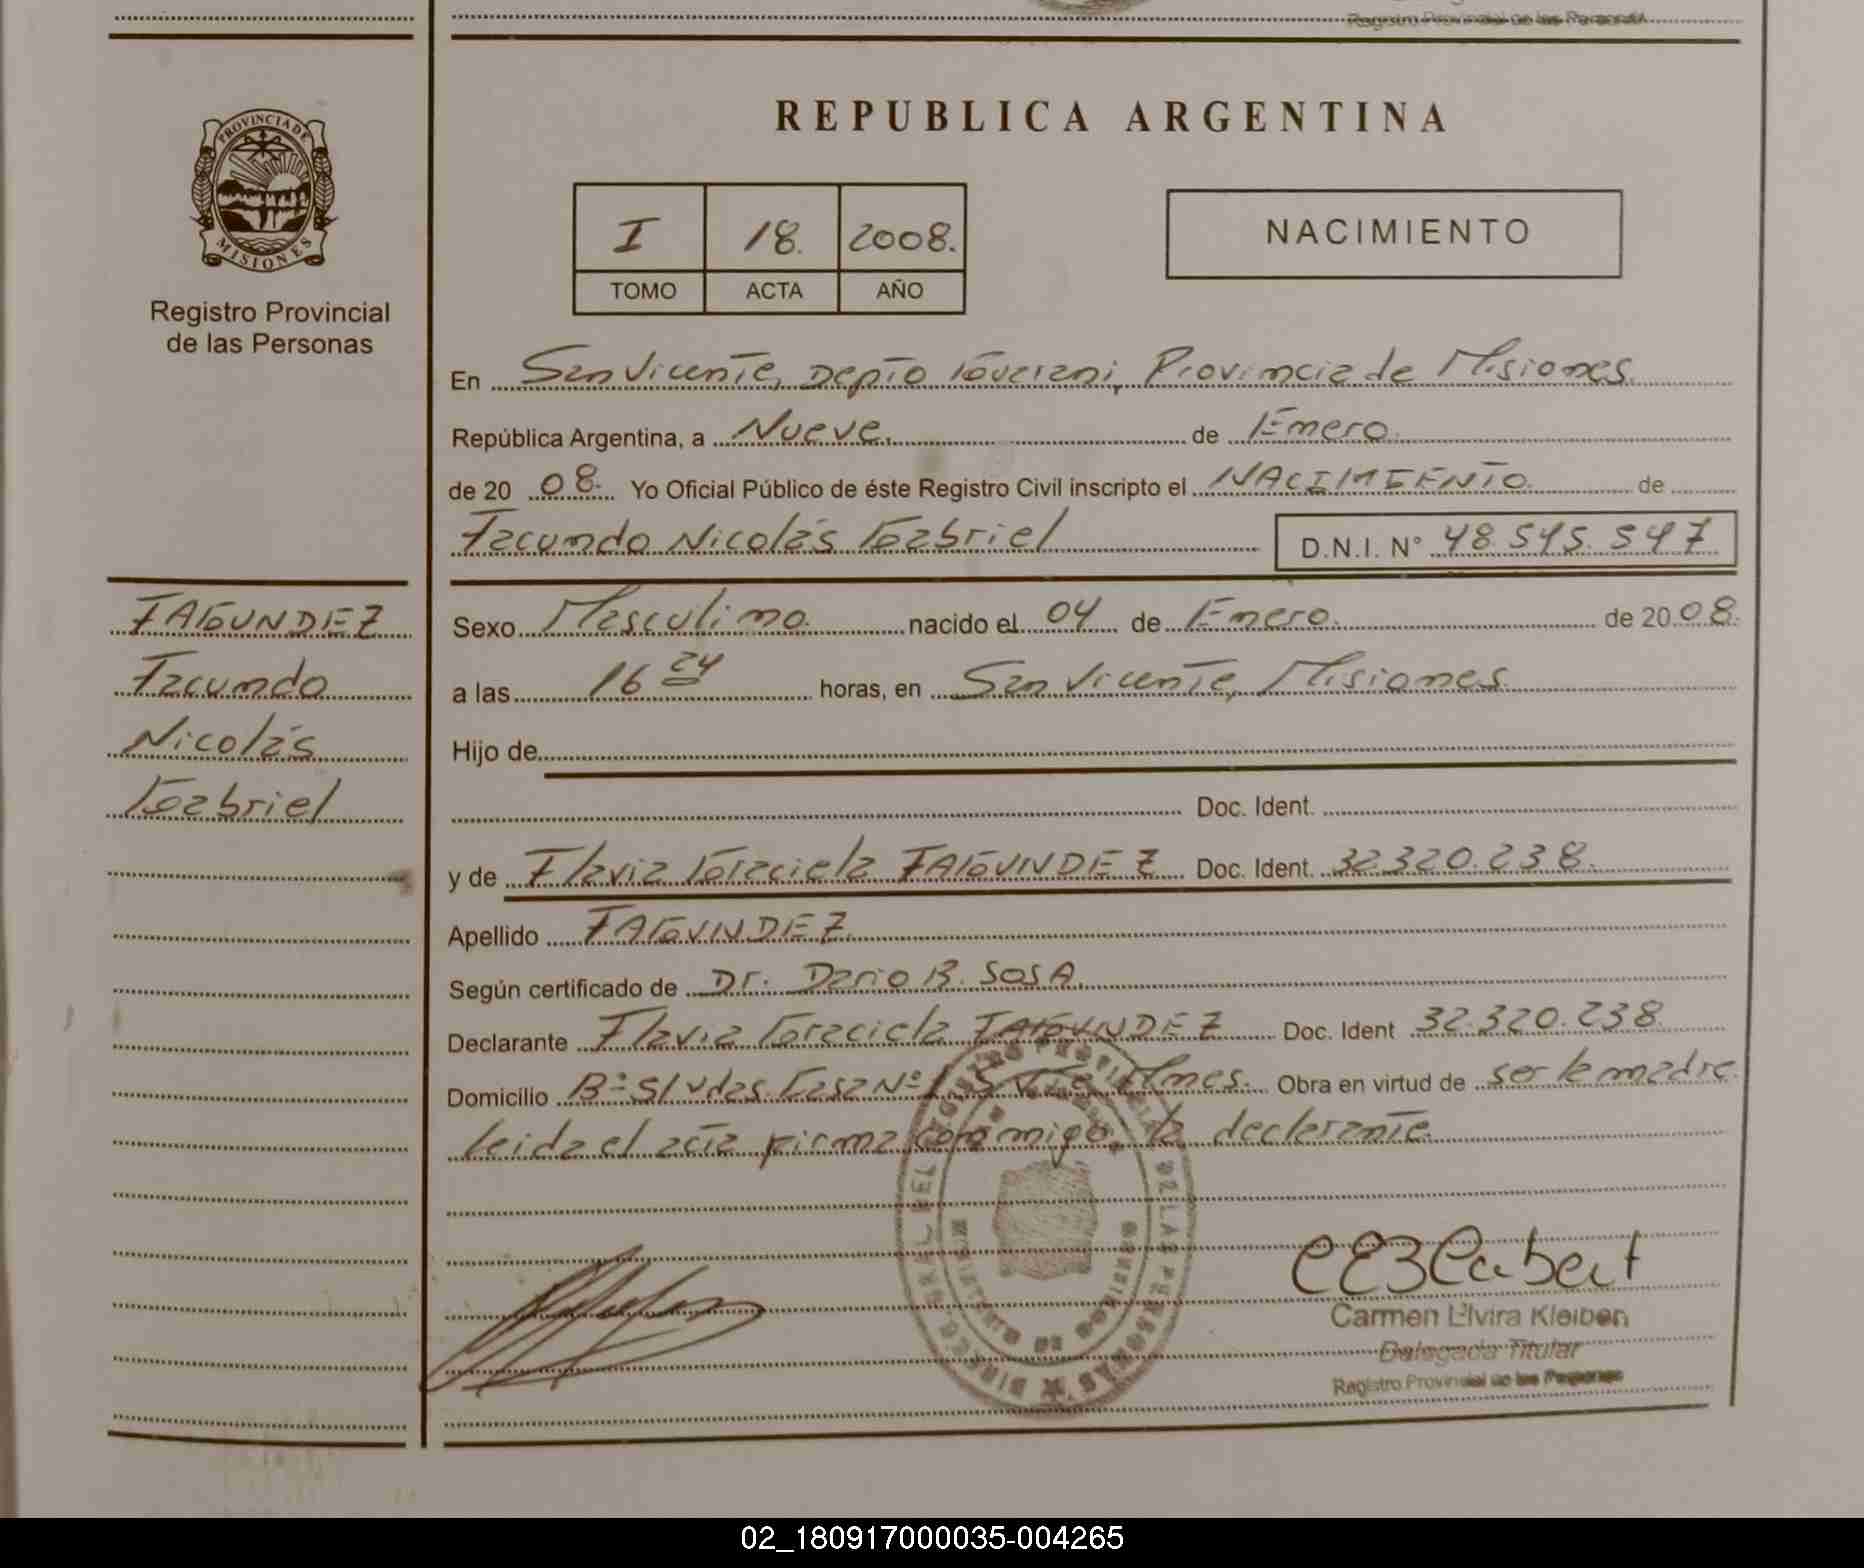 Registro Provincial de las Personas
REPUBLICA ARGENTINA
PROVINCIA DE
MISIONES
Registro Provincial
de las Personas
I 18. 2008.
TOMO ACTA AÑO
NACIMIENTO
En San Vicente, Depto Guarani, Provincia de Misiones
República Argentina, a Nueve. de Enero.
de 20 08. Yo Oficial Público de éste Registro Civil inscripto el NACIMIENTO. de
Facundo Nicolás Gabriel D.N.I. N° 48.545.547
FAGUNDEZ
Facundo
Nicolás
Gabriel
Sexo Masculino. nacido el 04 de Enero. de 20 08.
a las 16 24 horas, en San Vicente, Misiones
Hijo de
Doc. Ident.
y de Flavia Graciela FAGUNDEZ Doc. Ident. 32.320.238.
Apellido FAGUNDEZ.
Según certificado de Dr. Dario B. SOSA.
Declarante Flavia Graciela FAGUNDEZ Doc. Ident 32.320.238
Domicilio B° S/vdas. Casa N° Obra en virtud de ser la madre
leida el acta firma conmigo, la declarante.
Carmen Elvira Kleiben
Delegada Titular
Registro Provincial de las Personas
02_180917000035-004265